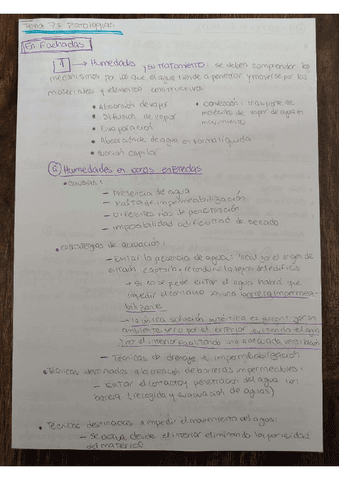 Tema 7.3 Patologías
En Fachadas
1 → Humedades y su tratamiento: se deben comprender los
mecanismos por los que el agua tiende a penetrar y moverse por los
materiales y elementos constructivos
• Absorción de vapor
• Difusión de vapor
• Evaporación
• Absorción de agua en forma líquida
• Succión capilar
• convección: transporte de
moléculas de vapor de agua en
movimiento
Humedades en zonas enterradas
• causas:
— Presencia de agua
— Falta de impermeabilización
— Diferentes vías de penetración
— Imposibilidad o dificultad de secado
• estrategias de actuación:
— Evitar la presencia de agua:
entrada, captarla y reconducirla lejos del edificio
→ Si no se puede evitar el agua habrá que
impedir el contacto con una barrera impermea-
bilizante
→ la única solución auténtica es conseguir un
ambiente seco por el exterior
por el interior facilitando una adecuada ventilación
— Técnicas de drenaje e impermeabilización
• Técnicas destinadas a la creación de barreras impermeables:
— Evitar el contacto y penetración del agua con
barrera (recogida y evacuación de aguas)
• Técnicas destinadas a impedir el movimiento del agua:
— Se actúa desde el interior eliminando la porosidad
del material